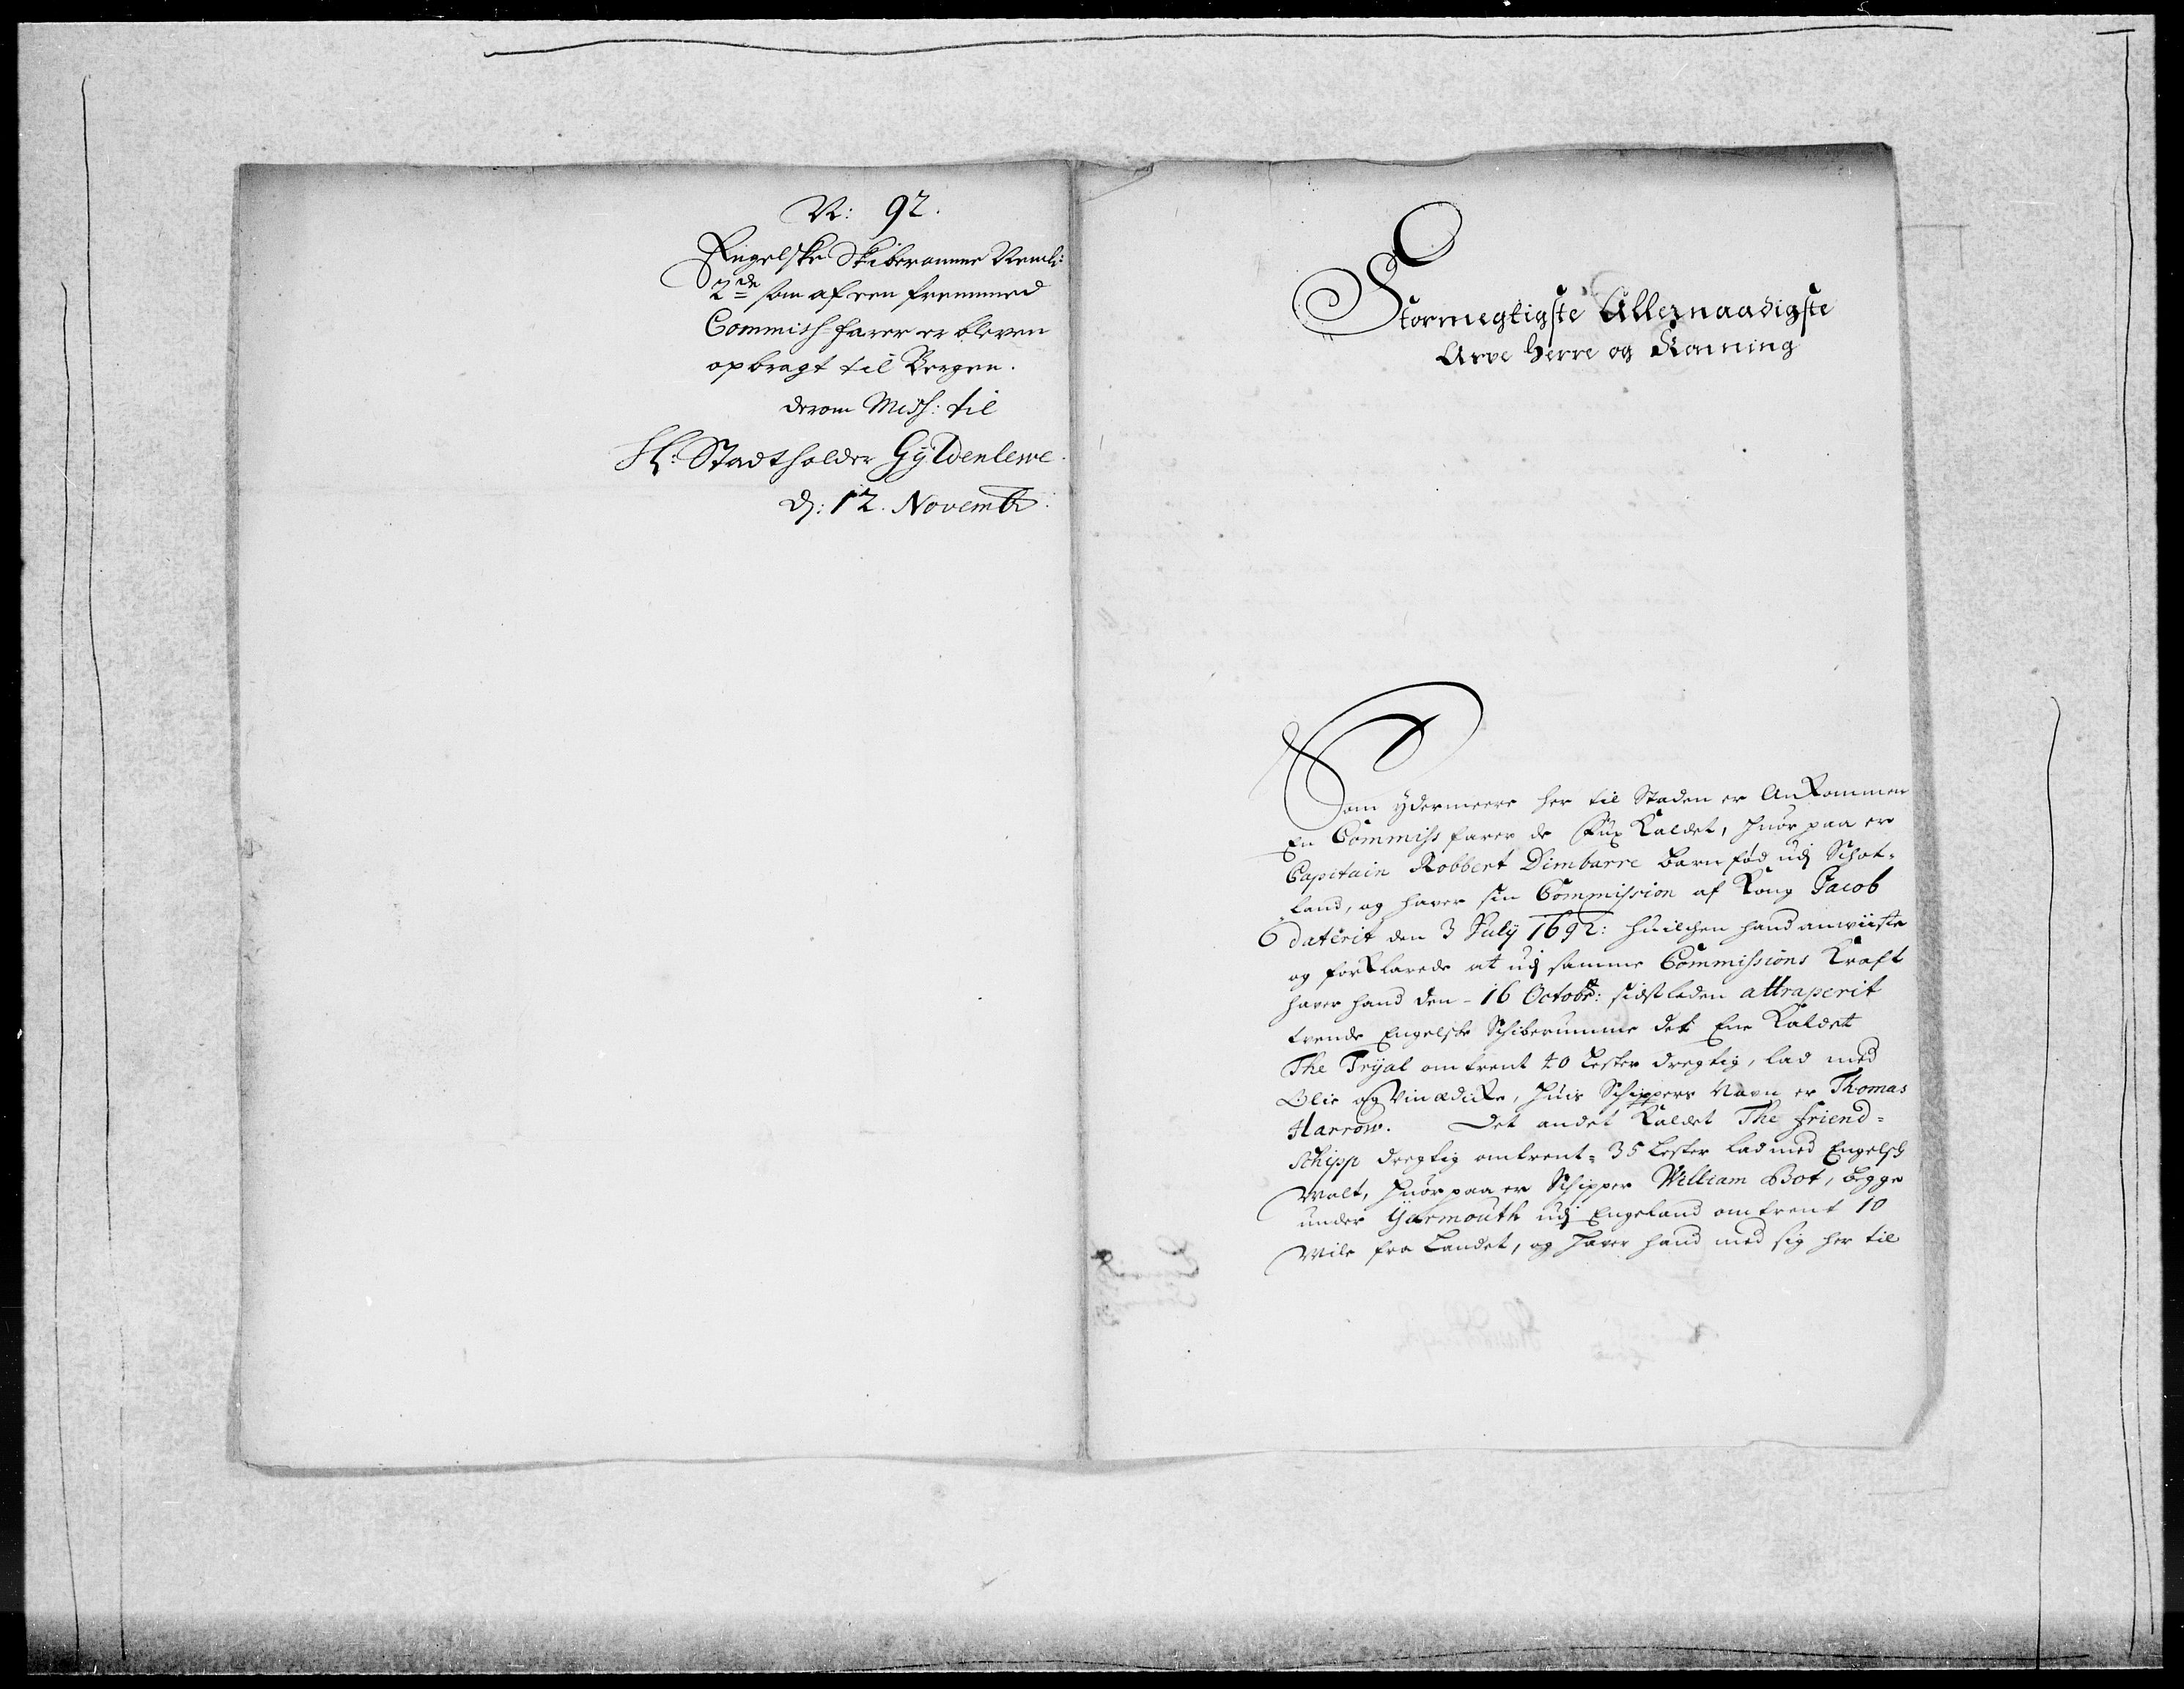 N: 92.
Engelske Skiberomme Neml:
2de som af een fremmed
Commiss farer er bleven
opbragt til Bergen.
derom Miss: til
H: Stadtholder Gyldenlewe.
d: 12. Novembr:
Stormegtigste Allernaadigste
Arve Herre og Konning
Som ydermeere her til Staden er Ankommen
En Commiss farer de Fux Kaldet, huor paa er
Capitain Robbert Dimbarre barnfød udj Schot-
land, og haver sin Commission af Kong Jacob
daterit den 3 July 1692: huilchen hand anviiste
og forklarede at udj samme Commissions Kraft
haver hand den 16 Octobr: sidstleden attraperit
tvende Engelske Schiberumme det Ene Kaldet
The Tryal omtrent 40 Lester dregtig, lad med
Olie og Vinædicke, huis Schippers Navn er Thomas
Harrow. Det andet Kaldet The friend-
schipp dregtig omtrent 35 Lester lad med Engelsch
Malt, huor paa er Schipper William Bot, begge
under Yarmouth udj Engeland omtrent 10
Mile fra Landet, og haver hand med sig her til